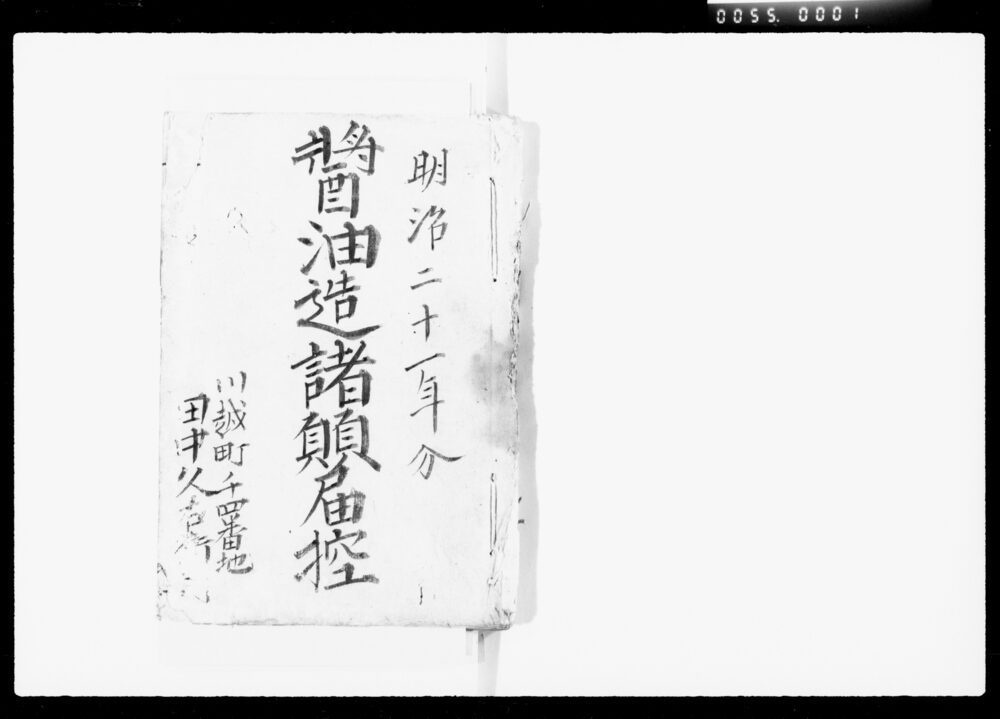 0055. 0001
明治二十一年分
醬油造諸願届控
川越町千四番地
田中久